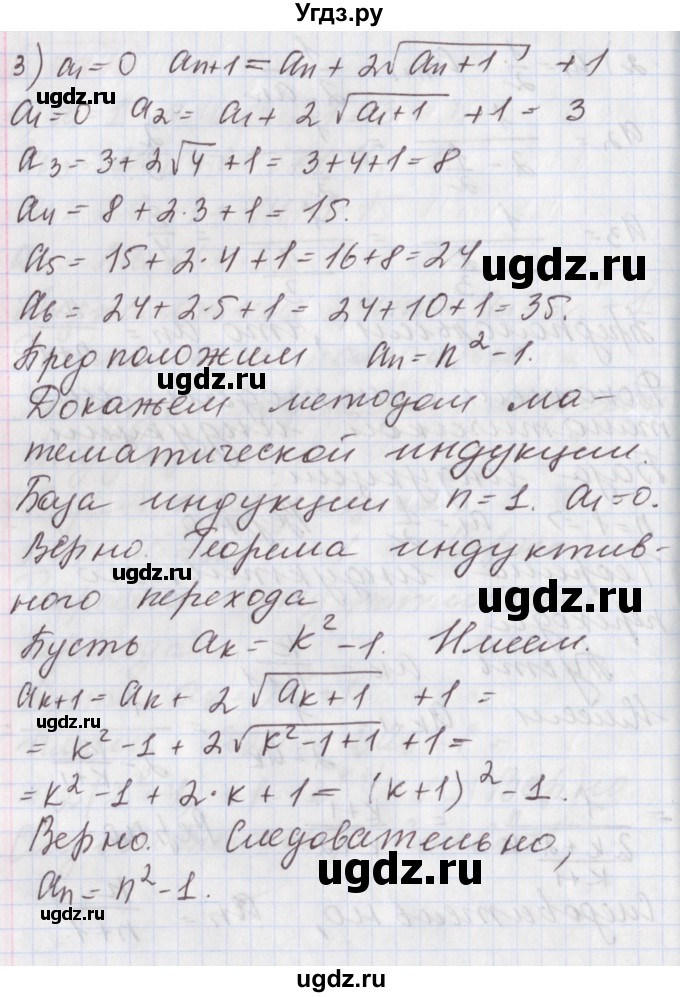 Угдз.ру
3) a₁=0 aₙ₊₁ = aₙ + 2√(aₙ+1) + 1
a₁=0 a₂ = a₁ + 2√(a₁+1) + 1 = 3
a₃ = 3+2√4 +1 = 3+4+1 = 8
a₄ = 8+2·3+1 = 15.
a₅ = 15+2·4+1 = 16+8 = 24
ugdz.ru
a₆ = 24+2·5+1 = 24+10+1 = 35.
Предположим aₙ = n²-1.
ugdz.ru
Докажем методом ма-
тематической индукции.
База индукции n=1. a₁=0.
Верно. Теорема индуктив-
ugdz.ru
ного перехода
ugdz.ru
Пусть aₖ = k²-1. Имеем.
aₖ₊₁ = aₖ + 2√(aₖ+1) + 1 =
ugdz.ru
= k²-1 + 2√(k²-1+1) + 1 =
= k²-1 + 2·k + 1 = (k+1)²-1.
Верно. Следовательно,
ugdz.ru
aₙ = n²-1.
ugdz.ru
ugdz.ru